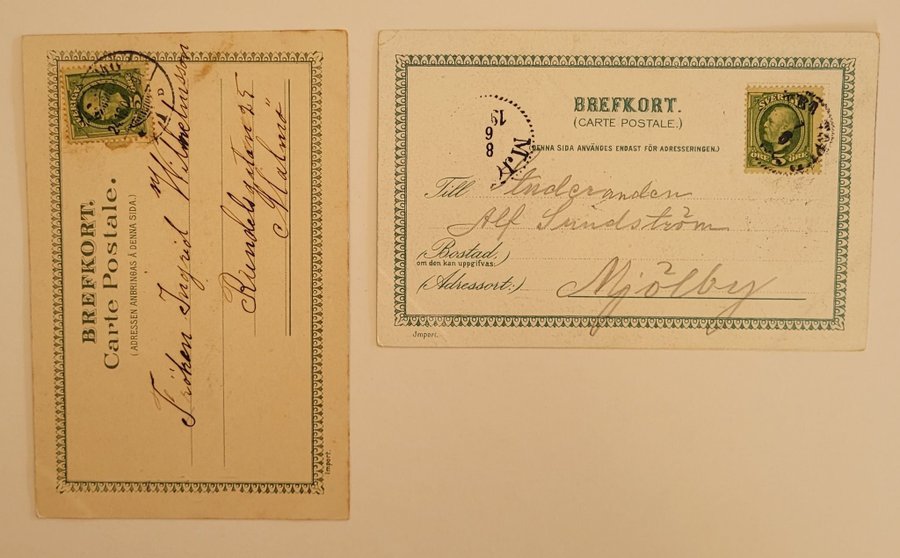 BREFKORT.
Carte Postale.
(ADRESSEN ANBRINGAS Å DENNA SIDA.)
Fröken Ingrid Wilhelmsson
Malmö
Import.
BREFKORT.
(CARTE POSTALE.)
(DENNA SIDA ANVÄNDES ENDAST FÖR ADRESSERINGEN.)
SVERIGE
5
ÖRE ÖRE
8
6
19
Till Studeranden
Alf Sundström
(Bostad,
om den kan uppgifvas.)
(Adressort:) Mjölby
Import.